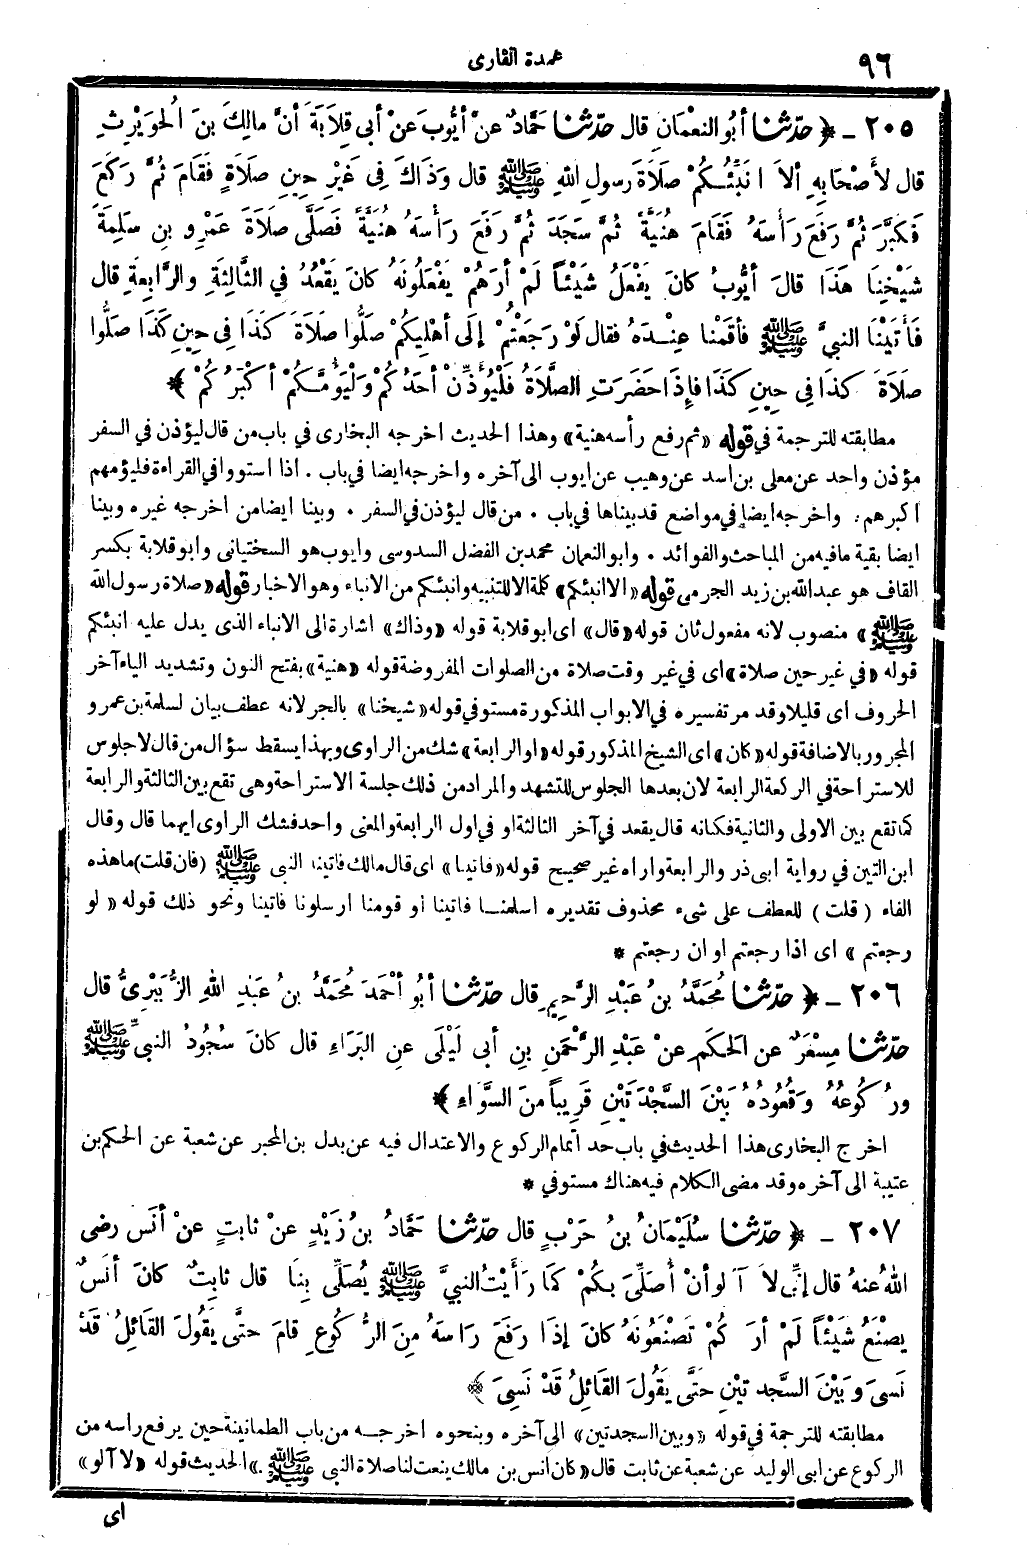 ٩٦
عمدة القارى
٢٠٥ - ﴿ حدّثنا أبُو النعْمَانِ قال حدّثنا حَمَّادٌ عنْ أيُّوبَ عَنْ أبي قِلَابَةَ أنَّ مالِكَ بنَ الْحوَيْرِثِ
قال لأَصْحَابِهِ ألاَ أُنَبِّئُكُمْ صَلَاةَ رسولِ اللهِ ﷺ قال وَذَاكَ فِى غَيْرِ حِينِ صَلَاةٍ فَقَامَ ثُمَّ رَكَعَ
فَكَبَّرَ ثُمَّ رَفَعَ رَأْسَهُ فَقَامَ هُنَيَّةً ثُمَّ سَجَدَ ثُمَّ رَفَعَ رَأْسَهُ هُنَيَّةً فَصَلَّى صَلَاةَ عَمْرِو بنِ سَلِمَةَ
شَيْخِنَا هَذَا قالَ أيُّوبُ كانَ يَفْعَلُ شَيْئاً لَمْ أرَهُمْ يَفْعَلُونَهُ كانَ يَقْعُدُ في الثَّالِثَةِ والرَّابِعةِ قال
فَأَتَيْنَا النبيَّ ﷺ فأقَمْنا عِنْدَهُ فقال لَوْ رَجَعْتُمْ إلَى أهْلِيكُمْ صَلُّوا صَلَاةَ كَذَا فِى حِينِ كَذَا صَلُّوا
صَلَاةَ كذَا فِي حِينِ كَذَا فإذَا حَضَرَتِ الصَّلَاةُ فَلْيُؤَذِّنْ أحَدُكُمْ وَلْيَؤُمَّكُمْ أكْبَرُكُمْ ﴾
مطابقته للترجمة في قوله «ثم رفع رأسه هنية» وهذا الحديث اخرجه البخارى في باب من قال ليؤذن في السفر
مؤذن واحد عن معلى بن اسد عن وهيب عن ايوب الى آخره واخرجه ايضا في باب . اذا استووا في القراءة فليؤمهم
اكبرهم . واخرجه ايضا في مواضع قد بيناها في باب . من قال ليؤذن في السفر . وبينا ايضا من اخرجه غيره وبينا
ايضا بقية ما فيه من المباحث والفوائد . وابو النعمان محمد بن الفضل السدوسى وايوب هو السختيانى وابو قلابة بكسر
القاف هو عبد الله بن زيد الجرمى قوله «الا انبئكم» كلمة الا للتنبيه وانبئكم من الانباء وهو الاخبار قوله «صلاة رسول الله
ﷺ» منصوب لانه مفعول ثان قوله «قال» اى ابو قلابة قوله «وذاك» اشارة الى الانباء الذى يدل عليه انبئكم
قوله «في غير حين صلاة» اى في غير وقت صلاة من الصلوات المفروضة قوله «هنية» بفتح النون وتشديد الياء آخر
الحروف اى قليلا وقد مر تفسيره في الابواب المذكورة مستوفي قوله «شيخنا» بالجر لانه عطف بيان لسلمة بن عمرو
المجرور بالاضافة قوله «كان» اى الشيخ المذكور قوله «او الرابعة» شك من الراوى وبهذا يسقط سؤال من قال لا جلوس
للاستراحة في الركعة الرابعة لان بعدها الجلوس للتشهد والمراد من ذلك جلسة الاستراحة وهى تقع بين الثالثة والرابعة
كما تقع بين الاولى والثانية فكانه قال يقعد في آخر الثالثة او في اول الرابعة والمعنى واحد فشك الراوى ايهما قال وقال
ابن التين في رواية ابى ذر والرابعة واراه غير صحيح قوله «فاتينا» اى قال مالك فاتينا النبى ﷺ (فان قلت) ما هذه
الفاء (قلت) للعطف على شىء محذوف تقديره اسلمنا فاتينا او قومنا ارسلونا فاتينا ونحو ذلك قوله «لو
رجعتم» اى اذا رجعتم او ان رجعتم *
٢٠٦ - ﴿ حدّثنا مُحَمَّدُ بنُ عَبْدِ الرَّحِيمِ قال حدّثنا أبُو أحْمَدَ مُحَمَّدُ بنُ عَبْدِ اللهِ الزُّبَيْرِىُّ قال
حدّثنا مِسْعَرٌ عنِ الحَكَمِ عنْ عَبْدِ الرَّحْمَنِ بنِ أبي لَيْلَى عنِ البَرَاءِ قال كانَ سُجُودُ النبيِّ ﷺ
ورُكُوعُهُ وَقُعُودُهُ بَيْنَ السَّجْدَتَيْنِ قَرِيباً مِنَ السَّوَاءِ ﴾
اخرج البخارى هذا الحديث في باب حد اتمام الركوع والاعتدال فيه عن بدل بن المحبر عن شعبة عن الحكم بن
عتيبة الى آخره وقد مضى الكلام فيه هناك مستوفي *
٢٠٧ - ﴿ حدّثنا سُلَيْمَانُ بنُ حَرْبٍ قال حدّثنا حَمَّادُ بنُ زَيْدٍ عنْ ثابتٍ عنْ أنَسٍ رضى
اللهُ عنهُ قال إنِّى لاَ آلُو أنْ أُصَلِّىَ بِكُمْ كَمَا رَأيْتُ النبيَّ ﷺ يُصَلِّى بِنَا قال ثابتٌ كانَ أنَسٌ
يصْنَعُ شَيْئاً لَمْ أرَكُمْ تَصْنَعُونَهُ كانَ إذَا رَفَعَ رَاسَهُ مِنَ الرُّكُوعِ قامَ حتَّى يقُولَ القَائِلُ قَدْ
نَسىَ وَبَيْنَ السَّجدتيْنِ حَتَّى يَقُولَ القَائِلُ قَدْ نَسِىَ ﴾
مطابقته للترجمة في قوله «وبين السجدتين» الى آخره وبنحوه اخرجه من باب الطمانينة حين يرفع راسه من
الركوع عن ابى الوليد عن شعبة عن ثابت قال «كان انس بن مالك ينعت لنا صلاة النبى ﷺ.» الحديث قوله «لا آلو»
اى